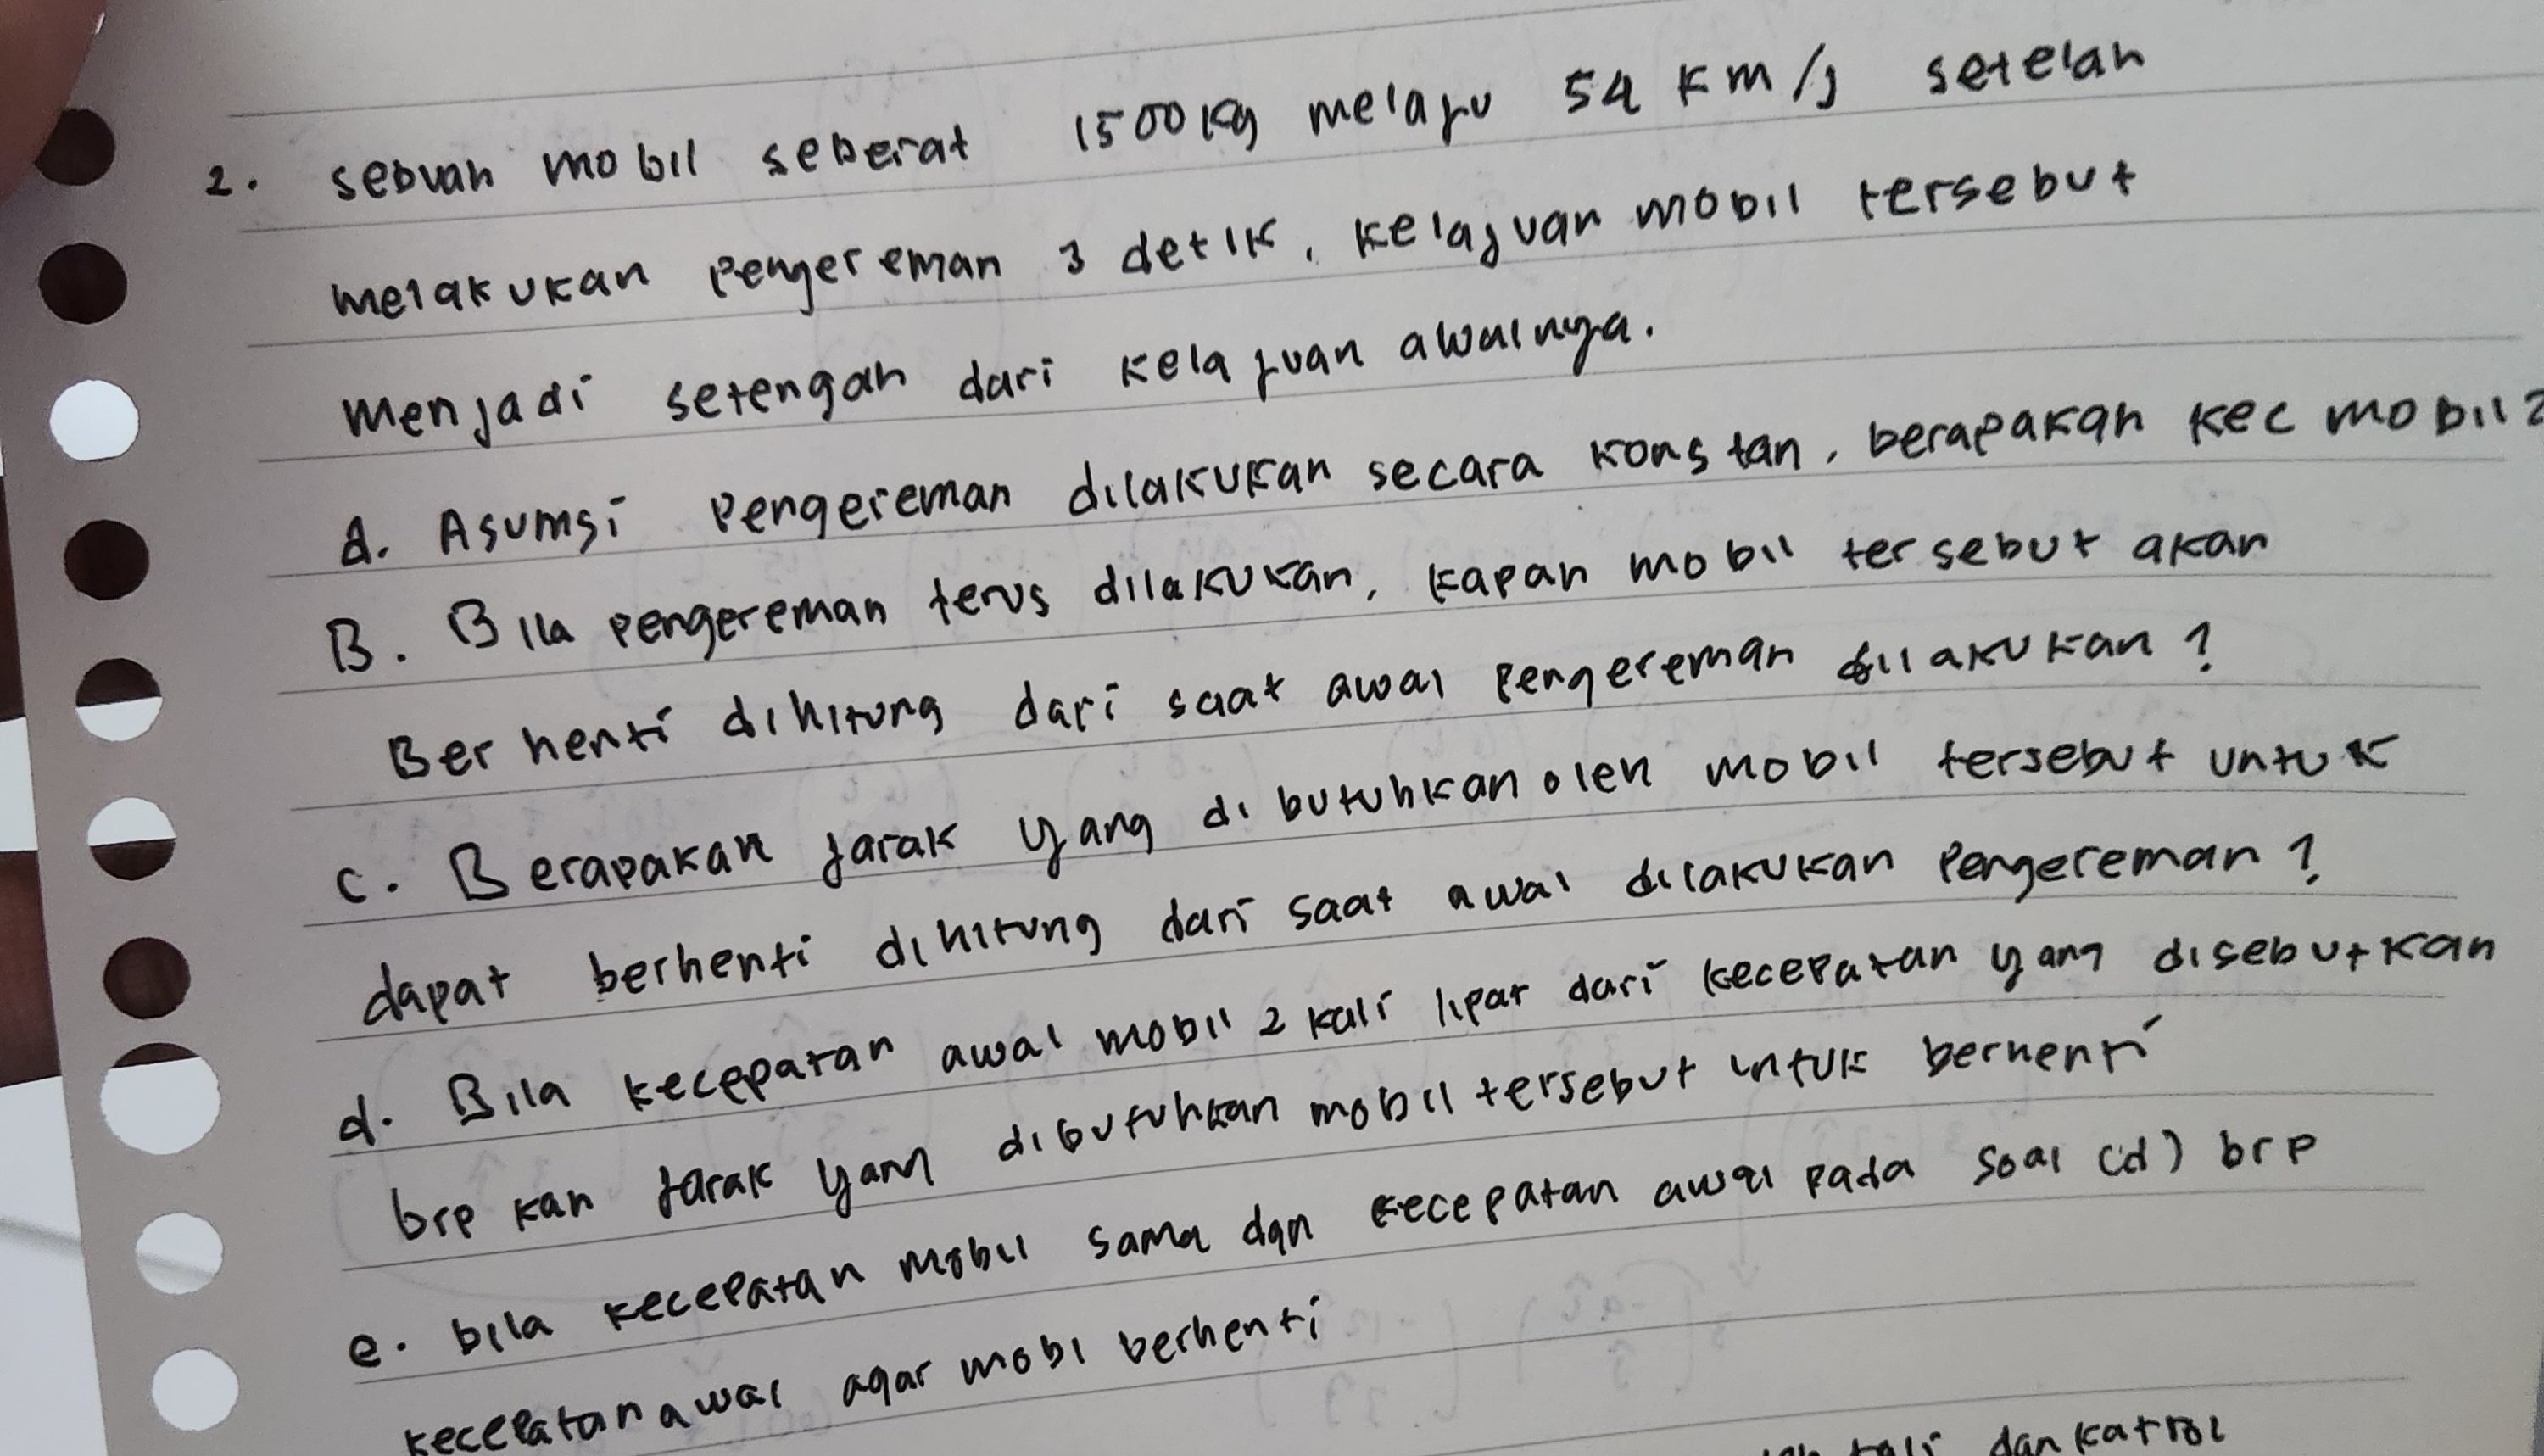 2. sebuah mobil seberat 1500 kg melaju 54 km/j setelah
melakukan pengereman 3 detik, kelajuan mobil tersebut
menjadi setengah dari kelajuan awalnya.
a. Asumsi pengereman dilakukan secara konstan, berapakah kec mobil?
B. Bila pengereman terus dilakukan, kapan mobil tersebut akan
Berhenti dihitung dari saat awal pengereman dilakukan?
c. Berapakah jarak yang dibutuhkan oleh mobil tersebut untuk
dapat berhenti dihitung dari saat awal dilakukan pengereman?
d. Bila kecepatan awal mobil 2 kali lipat dari kecepatan yang disebutkan
brp kah jarak yang dibutuhkan mobil tersebut untuk berhenti
e. bila kecepatan mobil sama dgn kecepatan awal pada soal (d) brp
kecepatan awal agar mobi berhenti
tali dan katrol